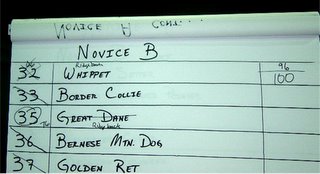 NOVICE A CONT...
NOVICE B
Ridgeback
32 WHIPPET 96 100
33 BORDER COLLIE
35 GREAT DANE
Ridgeback
36 BERNESE MTN. DOG
37 GOLDEN RET